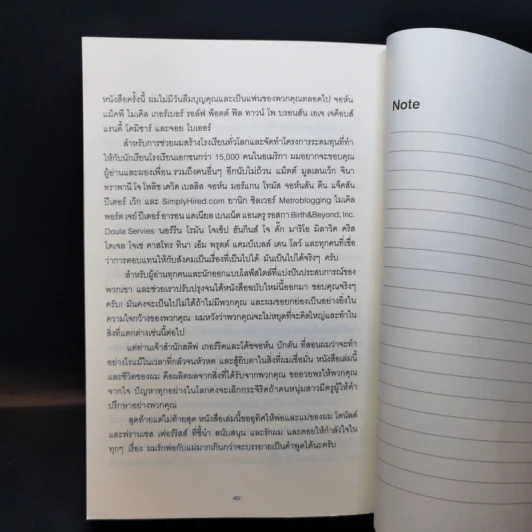 หนังสือครั้งนี้ ผมไม่มีวันลืมบุญคุณและเป็นแฟนของพวกคุณตลอดไป จอห์น
แม็คพี ไมเคิล เกอร์เบอร์ รอล์ฟ พ็อตส์ ฟิล ทาวน์ โพ บรอนสัน เอเจ เจค็อบส์
แรนดี้ โคมิซาร์ และจอย โบเออร์
สำหรับการช่วยผมสร้างโรงเรียนทั่วโลกและจัดทำโครงการระดมทุนที่ทำ
ให้กับนักเรียนโรงเรียนเอกชนกว่า 15,000 คนในอเมริกา ผมอยากจะขอบคุณ
ผู้อ่านและมองเพื่อน รวมถึงคนอื่นๆ อีกนับไม่ถ้วน แม็ตต์ มูลเลนเว็ก จินา
ทราพานี โจ โพลิช เดวิด เบลลิส จอห์น มอร์แกน โทมัส จอห์นสัน ดีน แจ็คสัน
ปีเตอร์ เว็ก และ SimplyHired.com ยานิก ซิลเวอร์ Metroblogging ไมเคิล
พอร์ต เจย์ ปีเตอร์ อารอน แดเนียล เบนเน็ต แอนดรูว์ รอสกา Birth&Beyond, Inc.
Doula Servies นอร์รีน โรมัน โจเซ็ป ฮันกินส์ โจ ดั๊ก มาริโอ มิลาวิค คริส
ไดเจล โจเซ คาสโทร ทีนา เอ็ม พรุตต์ แคมป์เบลล์ เดน โลว์ และทุกคนที่เชื่อ
ว่าการตอบแทนให้กับสังคมเป็นเรื่องที่เป็นไปได้ มันเป็นไปได้จริงๆ ครับ
สำหรับผู้อ่านทุกคนและนักออกแบบไลฟ์สไตล์ที่แบ่งปันประสบการณ์ของ
พวกเขา และช่วยเราปรับปรุงจนได้หนังสือฉบับใหม่นี้ออกมา ขอบคุณจริงๆ
ครับ! มันคงจะเป็นไปไม่ได้ถ้าไม่มีพวกคุณ และผมขอยกย่องเป็นอย่างยิ่งใน
ความใจกว้างของพวกคุณ ผมหวังว่าพวกคุณจะไม่หยุดที่จะคิดใหญ่และทำใน
สิ่งที่แตกต่างเช่นนี้ต่อไป
แด่ท่านเจ้าสำนักสตีฟ เกอร์ริคและโค้ชจอห์น บักตัน ที่สอนผมว่าจะทำ
อย่างไรแม้ในเวลาที่กลัวจนหัวหด และสู้ยิบตาในสิ่งที่ผมเชื่อมั่น หนังสือเล่มนี้
และชีวิตของผม คือผลิตผลจากสิ่งที่ได้รับจากพวกคุณ ขออวยพรให้พวกคุณ
จากใจ ปัญหาทุกอย่างในโลกคงจะเล็กกระจิริดถ้าคนหนุ่มสาวมีครูผู้ให้คำ
ปรึกษาอย่างพวกคุณ
สุดท้ายแต่ไม่ท้ายสุด หนังสือเล่มนี้ขออุทิศให้พ่อและแม่ของผม โดนัลด์
และฟรานเซส เฟอร์ริสส์ ที่ชี้นำ สนับสนุน และรักผม และคอยให้กำลังใจใน
ทุกๆ เรื่อง ผมรักพ่อกับแม่มากเกินกว่าจะบรรยายเป็นคำพูดได้นะครับ
Note